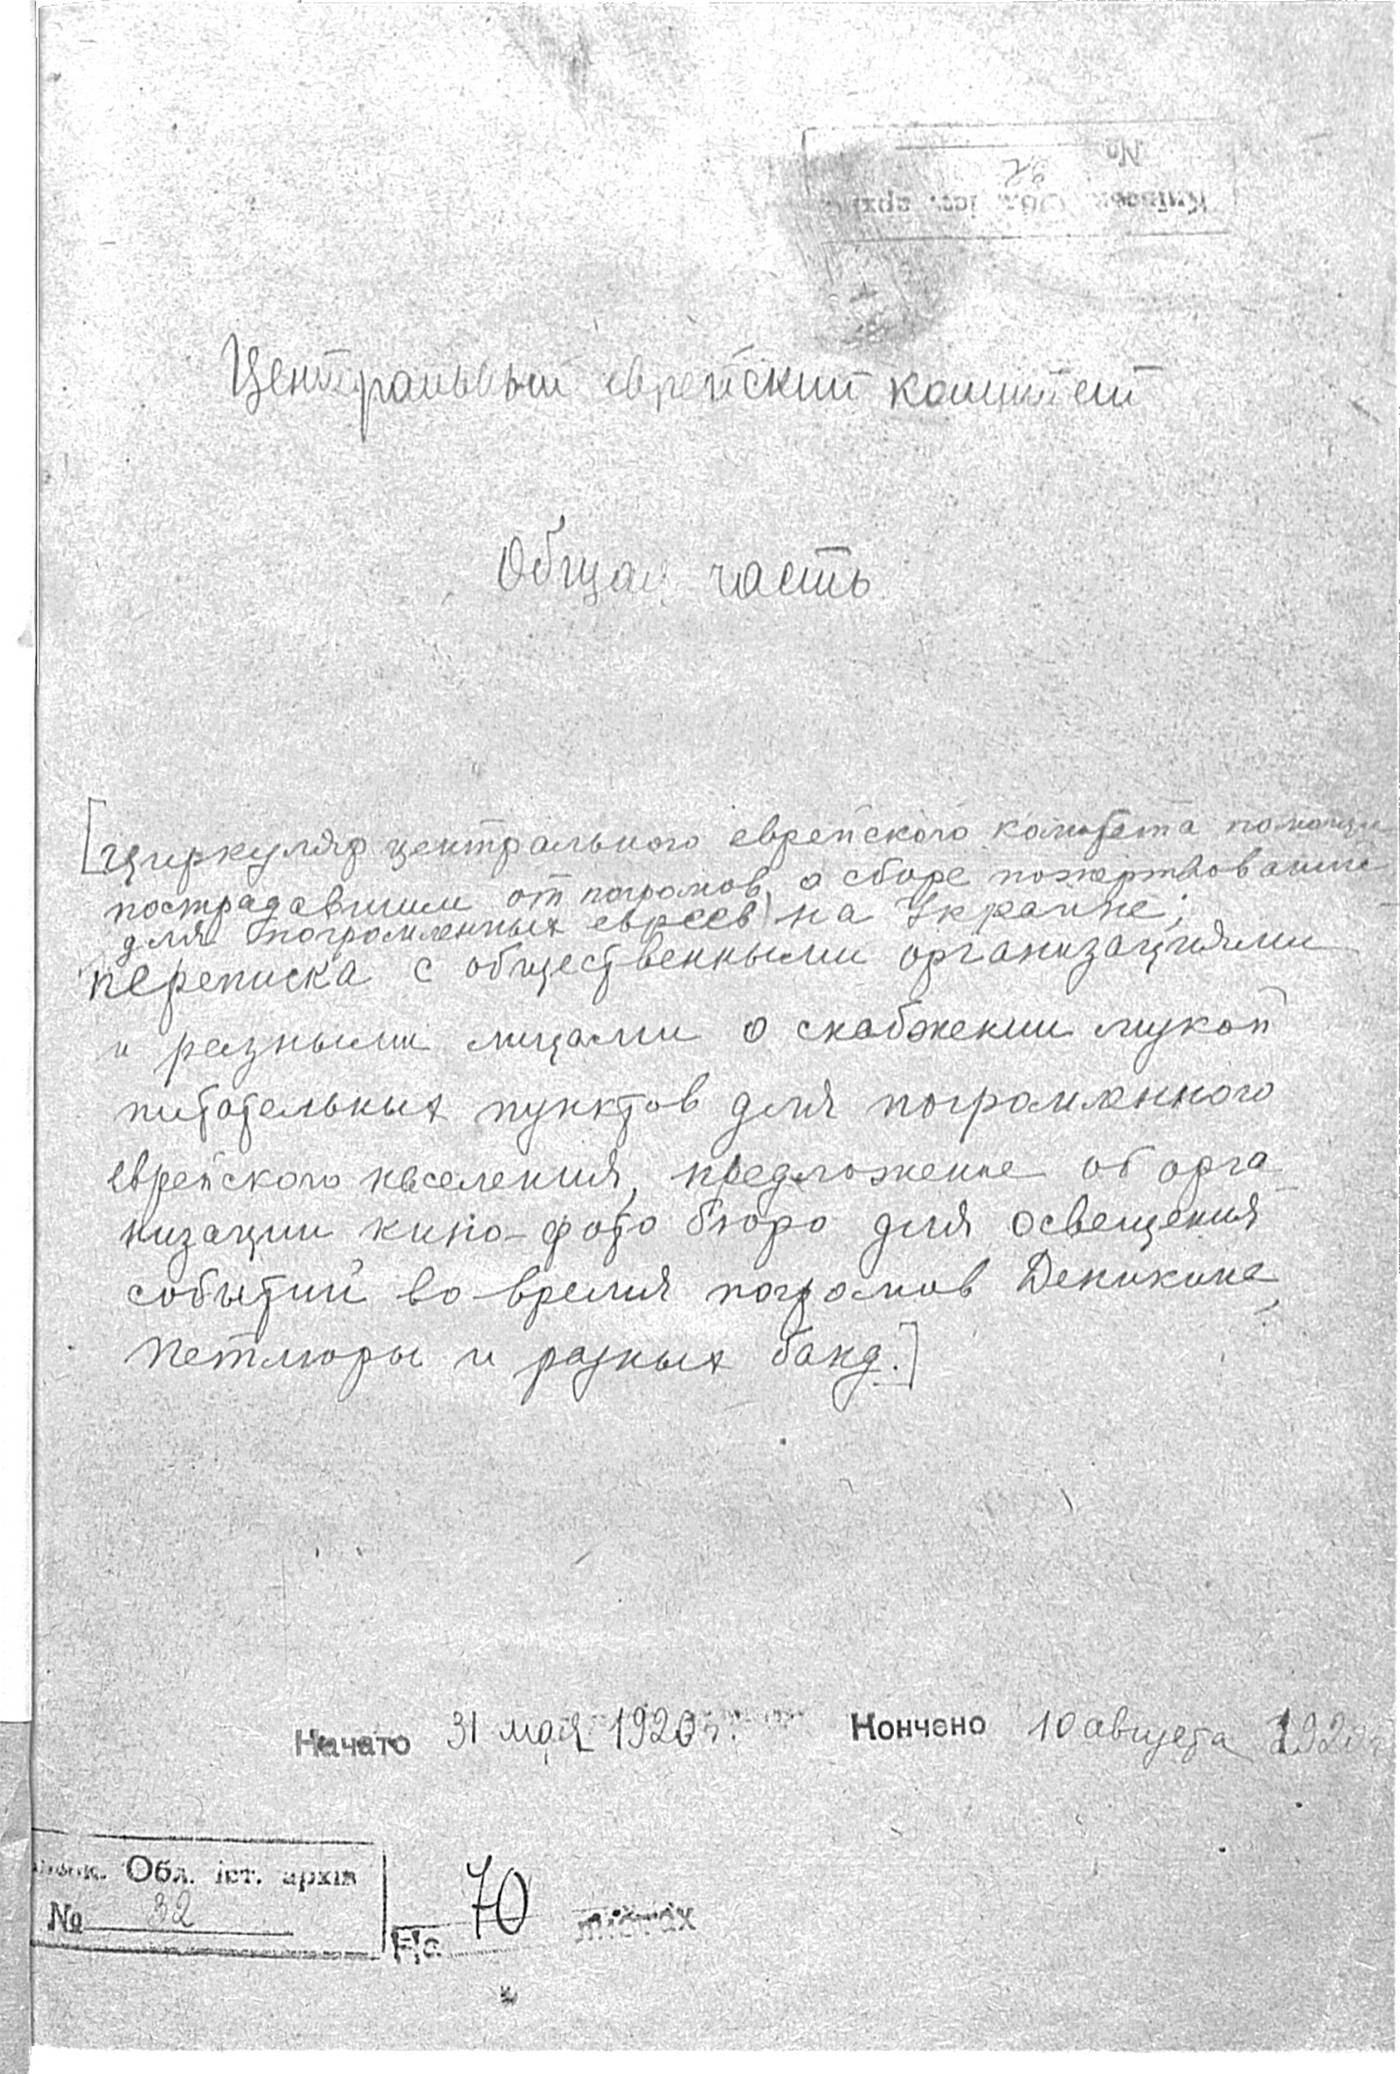 №
Київськ. Обл. іст. архів
Центральный еврейский комитет
Общая часть
[Циркуляр центрального еврейского комитета помощи
пострадавшим от погромов, о сборе пожертвований
для погромленных евреев на Украине;
переписка с общественными организациями
и разными лицами о снабжении мукой
питательных пунктов для погромленного
еврейского населения, предложение об орга-
низации кино-фото бюро для освещения
событий во время погромов Деникина,
Петлюры и разных банд.]
Начато 31 мая 1920 г. Кончено 10 августа 1920 г.
Обл. іст. архів
№ 32
На 70 листах